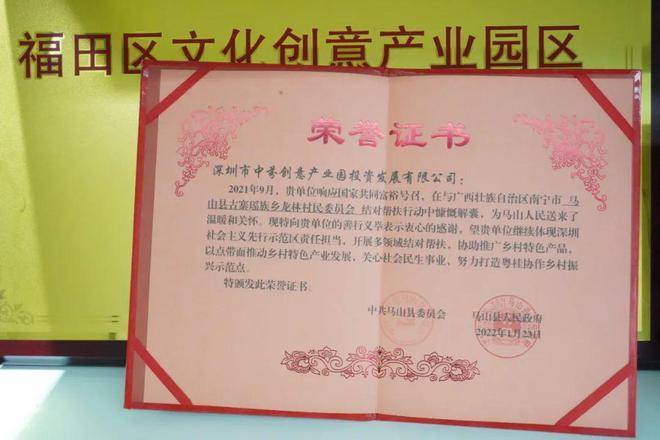 福田区文化创意产业园区
荣誉证书
深圳市中芬创意产业园投资发展有限公司：
2021年9月，贵单位响应国家共同富裕号召，在与广西壮族自治区南宁市 马
山县古寨瑶族乡龙林村民委员会 结对帮扶行动中慷慨解囊，为马山人民送来了
温暖和关怀。现特向贵单位的善行义举表示衷心的感谢。望贵单位继续体现深圳
社会主义先行示范区责任担当，开展多领域结对帮扶，协助推广乡村特色产品，
以点带面推动乡村特色产业发展，关心社会民生事业，努力打造粤桂协作乡村振
兴示范点。
特颁发此荣誉证书。
中共马山县委员会 马山县人民政府
2022年1月23日